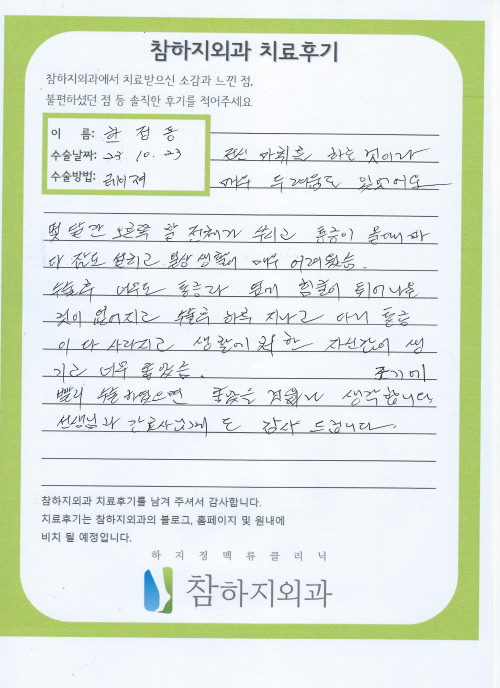 참하지외과 치료후기
참하지외과에서 치료받으신 소감과 느낀 점,
불편하셨던 점 등 솔직한 후기를 적어주세요
이 름: 하 점 동
수술날짜: 23 10. 23
수술방법: 레이저
전신 마취를 하는 것이라
매우 두려움도 있었어요
몇 달간 오른쪽 팔 전체가 쑤리고 통증이 올때마
다 잠도 설치고 일상생활이 매우 어려웠음.
수술후 너무도 통증과 힘줄이 튀어나온
것이 없어지고 수술후 하루 지나고 나니 통증
이 다 사라지고 생활에 대한 자신감이 생
기고 너무 좋았음. 조기에
빨리 수술하였으면 좋았을 것을 생각합니다
선생님과 간호사님에게도 감사 드립니다.
참하지외과 치료후기를 남겨 주셔서 감사합니다.
치료후기는 참하지외과의 블로그, 홈페이지 및 원내에
비치 될 예정입니다.
하 지 정 맥 류 클 리 닉
참하지외과